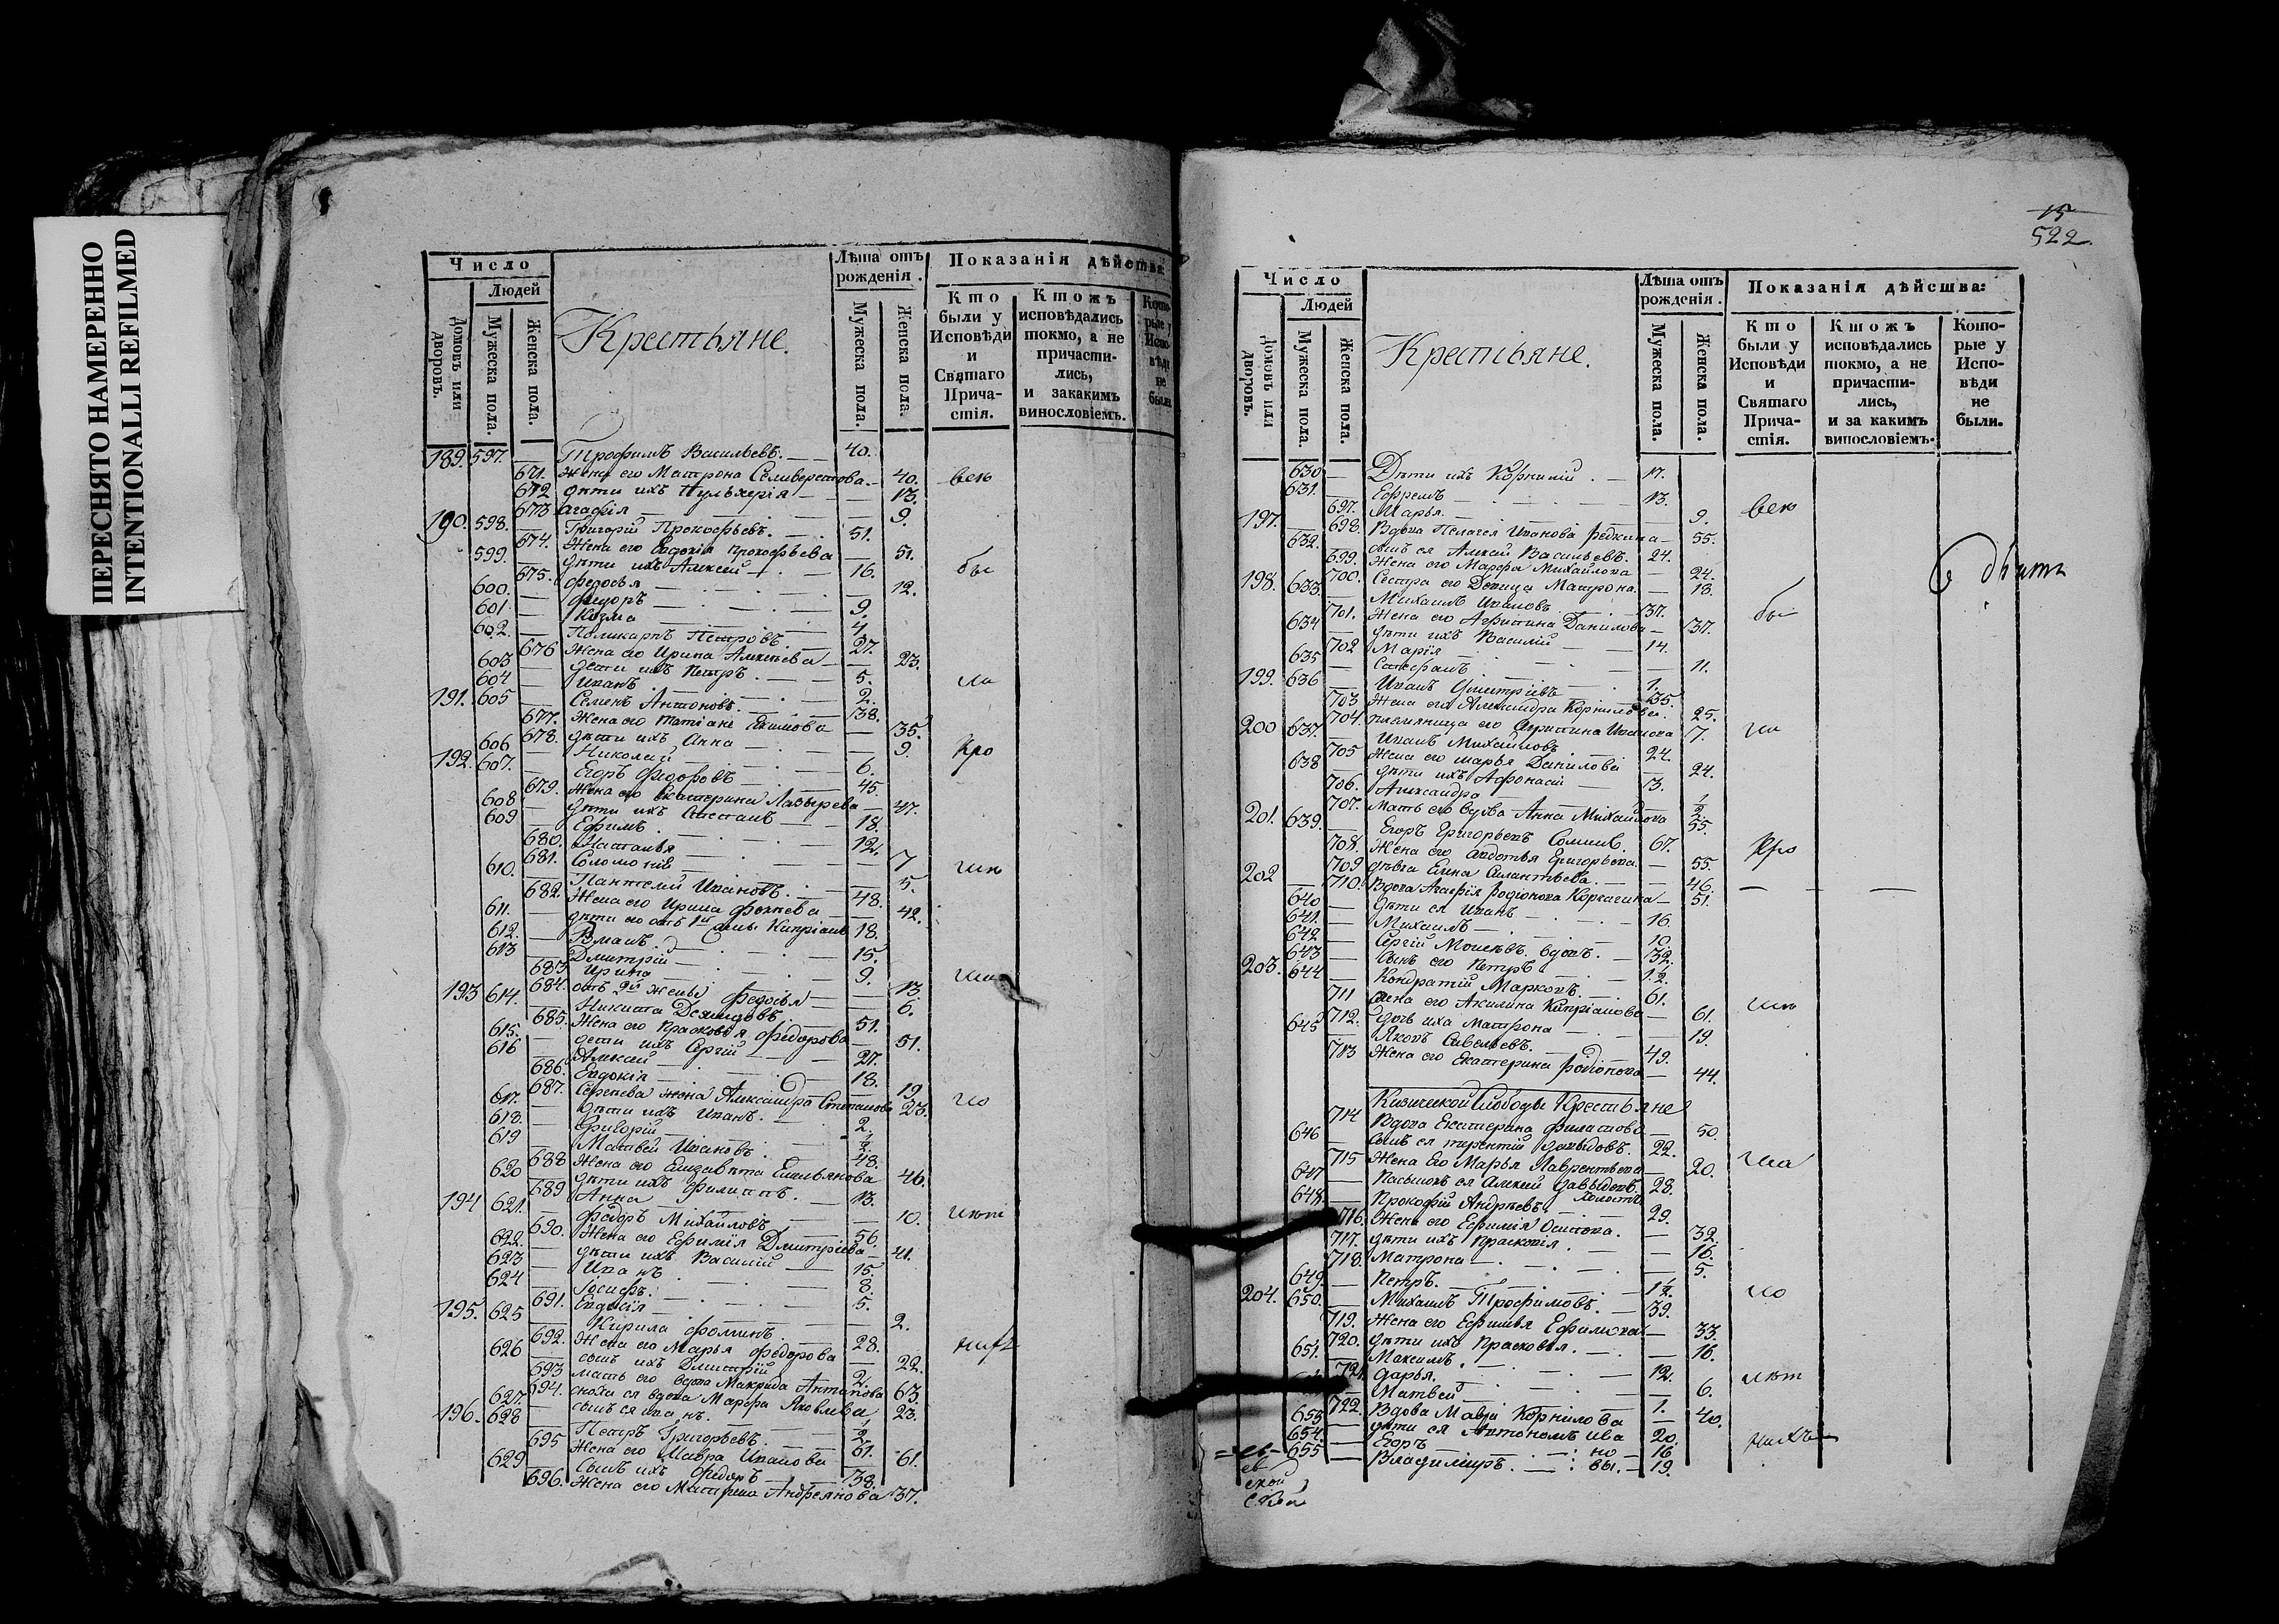 ПЕРЕСНЯТО НАМЕРЕННО
INTENTIONALLI REFILMED
Число
Людей
Домовъ или дворовъ.
Мужеска пола.
Женска пола.
Крестьяне.
Лѣта отъ рожденія.
Мужеска пола.
Женска пола.
Показанія дѣйства:
Кто были у Исповѣди и Святаго Причастія.
Ктожъ исповѣдались токмо, а не причастились, и закакимъ винословіемъ.
Которые у Исповѣди не были
189. 597. — Трофимъ Васильевъ. — 40.
671. Жена его Матрона Селиверстова — 40.
672 дѣти ихъ Пульхерія — 13.
673 Агафія — 9.
190. 598. — Григорій Прокофьевъ. — 51.
674. Жена его Евдокія Прокофьева — 51.
599. — дѣти ихъ Алексѣй — 16.
675. Федосья — 12.
600. — Федоръ — 9
601 — Козма — 4
602. — Поликарпъ Петровъ. — 27.
676 Жена его Ирина Алексѣева — 23.
603 — дѣти ихъ Петръ. — 5.
604 — Иванъ. — 2.
191. 605 — Семенъ Антоновъ. — 38.
677. Жена его Татіана Екимова — 35.
678. дѣти ихъ Анна — 9.
606 — Николай — 6.
192. 607. — Егоръ Федоровъ — 45.
679. Жена его Екатерина Лазырева — 47.
608 — дѣти ихъ Степанъ — 18.
609 — Ефимъ. — 12.
680. Наталья — 7
681. Соломонія — 5.
610. — Пантелей Ивановъ. — 48.
682. Жена его Ирина Фокеева — 42.
611. — дѣти его отъ 1й жены Кипріанъ 18.
612. — Романъ. — 15.
613 — Дмитрій — 9.
683 Ирина — 13
684. отъ 2й жены Федосья — 6.
193 614. — Никита Демидовъ. — 51.
685. Жена его Прасковья Федорова — 51.
615. — дѣти ихъ Сергій — 27.
616 — Алексѣй — 18.
686. Евдокія — 19
687. Сергѣева жена Александра Степанова 23.
617. — дѣти ихъ Иванъ. — 2.
618. — Григорій — 1/2.
619 — Матвѣй Ивановъ. — 48.
688 Жена его Елизавѣта Емельянова 46.
620 — дѣти ихъ Филиппъ. — 13.
689 Анна — 10.
194 621. — Федоръ Михайловъ. — 56.
690. Жена его Ефимія Дмитріева — 41.
622. — дѣти ихъ Василій — 15.
623 — Иванъ — 8.
624 — Іосифъ. — 5.
691. Евдокія — 2.
195. 625 — Кирила Фоминъ. — 28.
692. Жена его Марья Федорова — 22.
626 — сынъ ихъ Дмитрій — 2.
693 мать его вдова Макрида Антипова 63.
694. сноха ея вдова Марфа Яковлева 23.
627. — сынъ ея Иванъ. — 2.
196. 628 — Петръ Григорьевъ — 61.
695 Жена его Мавра Иванова — 61.
629 — Сынъ ихъ Федоръ — 38.
696. Жена его Матрена Андреянова 37.
15
522.
Число
Людей
Домовъ или дворовъ.
Мужеска пола.
Женска пола.
Крестьяне.
Лѣта отъ рожденія.
Мужеска пола.
Женска пола.
Показанія дѣйства:
Кто были у Исповѣди и Святаго Причастія.
Ктожъ исповѣдались токмо, а не причастились, и за какимъ винословіемъ.
Которые у Исповѣди не были.
630 — Дѣти ихъ Корнилій. — 17.
631. — Ефремъ — 13.
697. Марья. — 9.
197. 698. Вдова Пелагея Иванова Редкина — 55.
632. — сынъ ея Алексѣй Васильевъ. 24.
699. Жена его Марфа Михайлова — 24.
700. Сестра его Девица Матрона. — 18.
198. 633. — Михаилъ Ивановъ — 37.
701. Жена его Агрипина Данилова — 37.
634 — дѣти ихъ Василій — 14.
702 Марія — 11.
635 — Стефанъ — 1.
199. 636 — Иванъ Дмитріевъ — 35.
703 Жена его Александра Корнилова. 25.
704. племянница его Агрипина Иванова 17.
200 637. — Иванъ Михайловъ — 24.
705 Жена его Марья Данилова — 24.
638 — дѣти ихъ Афонасій — 3.
706. Александра — 1/2
707. Мать его вдова Анна Михайлова 55.
201. 639. — Егоръ Григорьевъ Соминъ. 67.
708. Жена его Авдотья Григорьева — 55.
709 дѣвка Елена Силантьева. — 46.
202 — 710. Вдова Агафія Родіонова Корчагина — 51.
640 — Дѣти ея Иванъ — 16.
641. — Михаилъ — 10.
642 — Сергій Моисеевъ. вдовъ. — 32.
643 — Сынъ его Петръ — 12.
203. 644 — Кондратій Марковъ. — 61.
711 Жена его Акилина Кипріанова — 61.
712. дочь ихъ Матрона — 19.
645 — Яковъ Савельевъ. — 49.
713 Жена его Екатерина Родіонова — 44.
Кизической слободы Крестьяне
714 Вдова Екатерина Филатова — 50.
646 — Сынъ ея Терентій Давыдовъ. 22.
715 Жена Его Марья Лаврентьева — 20.
647 — Пасынокъ ея Алексѣй Давыдовъ. 28.
холостъ
648. — Прокофій Андреевъ. — 29.
716. Жена его Ефимія Осипова. — 32.
717. дѣти ихъ Прасковія. — 16.
718. Матрона — 5.
649. — Петръ. — 1 1/2.
204. 650. — Михаилъ Трофимовъ. — 39.
719. Жена его Ефимья Ефимова — 33.
720. дѣти ихъ Прасковья. — 16.
651. — Максимъ. — 12.
721. Дарья. — 6.
Матвѣй — 1.
722. Вдова Мавра Корнилова — 40.
653 — дѣти ея Антономъ 20.
654. — Егоръ — 16.
655 — Владиміръ. — 19.